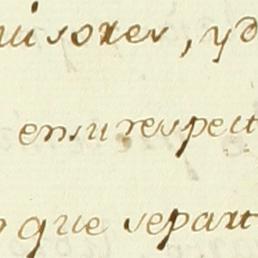 uisores, yd
ensu respect
que separt